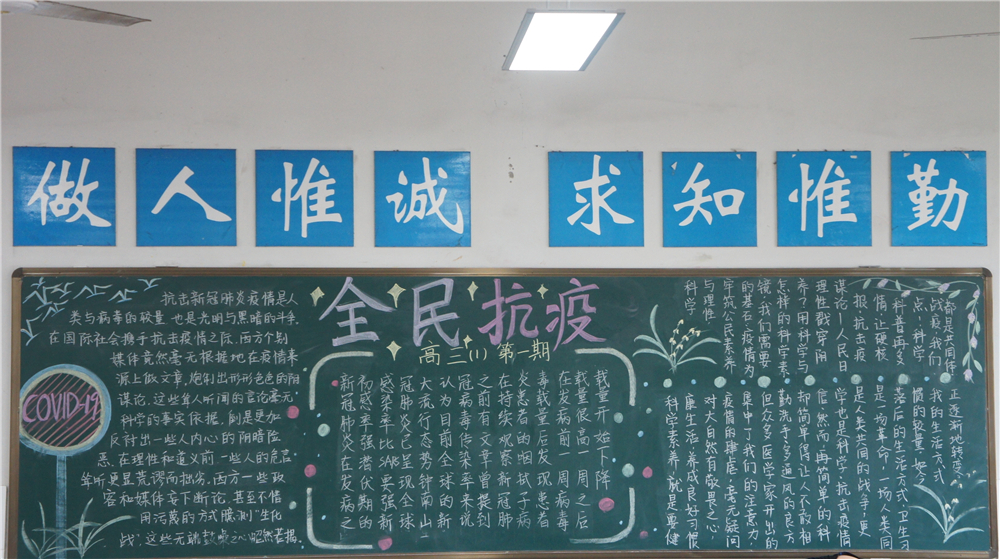 做人惟诚
求知惟勤
全民抗疫
高三(1)第一期
抗击新冠肺炎疫情是人
类与病毒的较量 也是光明与黑暗的斗争。
在国际社会携手抗击疫情之际,西方个别
媒体竟然毫无根据地在疫情来
源上做文章,炮制出形形色色的阴
谋论,这些耸人听闻的言论毫无
科学的事实依据,则是更加
反衬出一些人内心的阴暗险
恶,在理性和道义前,一些人的危言
耸听更显荒谬而拙劣,西方一些政
客和媒体妄下断论,甚至不惜
用污蔑的方式臆测"生化
战",这些无端
昭然若揭。
COVID-19
新冠肺炎在发病之
初感染率强潜伏期的
感染率比SARS要强新
冠肺炎已呈现全球
大流行态势钟南山
认为目前全球的新
冠病毒传染率来说
之前有文章曾提到
在持续观察新冠肺
炎患者的咽拭子病
毒载量后发现患者
在发病前一周病毒
载量很高一周之后
载量开始下降
都是共同体
战"疫"我们
点:科学
科普再多
情让硬核
报:抗击疫
谋论,人民日
理性戳穿阴
养了用科学与
怎样的科学素
镜,我们需要
的基石,疫情为
牢筑公民素养
与理性
科学
正逐渐地转变
我的生活方式
惯的较量",如今
治后的生活方式,卫生习
是一场革命,一场人类同
是人类共同的战争,更
学也是科学,抗击疫情
信然而再简单的科
却简单得让人不敢相
勤洗手多多通风的良方
但众多医学家开出的
集中了我们的注意力
疫情的肆虐,毫无疑问
对大自然有敬畏之心,
康生活,养成良好习惯
科学素养就是要健